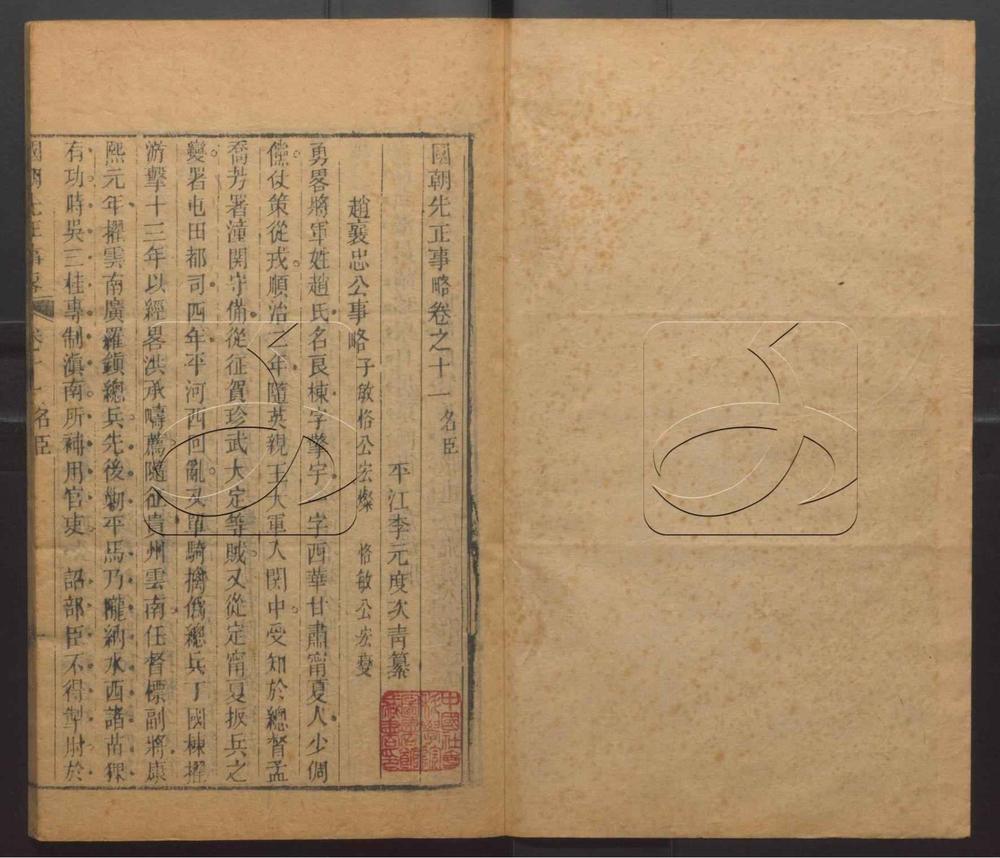 國朝先正事略卷之十一 名臣
平江李元度次青纂
趙襄忠公事略 子敏恪公宏燦 恪敏公宏燮
勇畧將軍姓趙氏名良棟字擎宇一字西華甘肅甯夏人少倜
儻仗策從戎順治二年隨英親王大軍入關中受知於總督孟
喬芳署潼關守備從征賀珍武大定等賊又從定甯夏叛兵之
變署屯田都司四年平河西回亂又單騎擒僞總兵丁國棟擢
游擊十三年以經畧洪承疇薦隨征貴州雲南任督標副將康
熙元年擢雲南廣羅鎮總兵先後勦平馬乃隴納水西諸苗猓
有功時吳三桂專制滇南所補用官吏 詔部臣不得掣肘於
國朝先正事略 卷十一 名臣